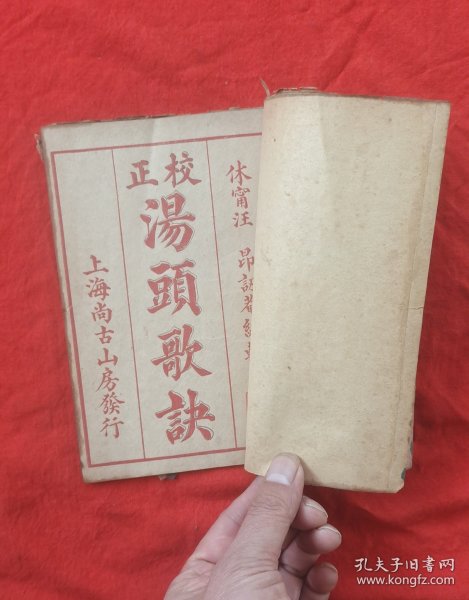 校正
湯頭歌訣
休甯汪 昂訒菴編
上海尚古山房發行
孔夫子旧书网
www.kongfz.com